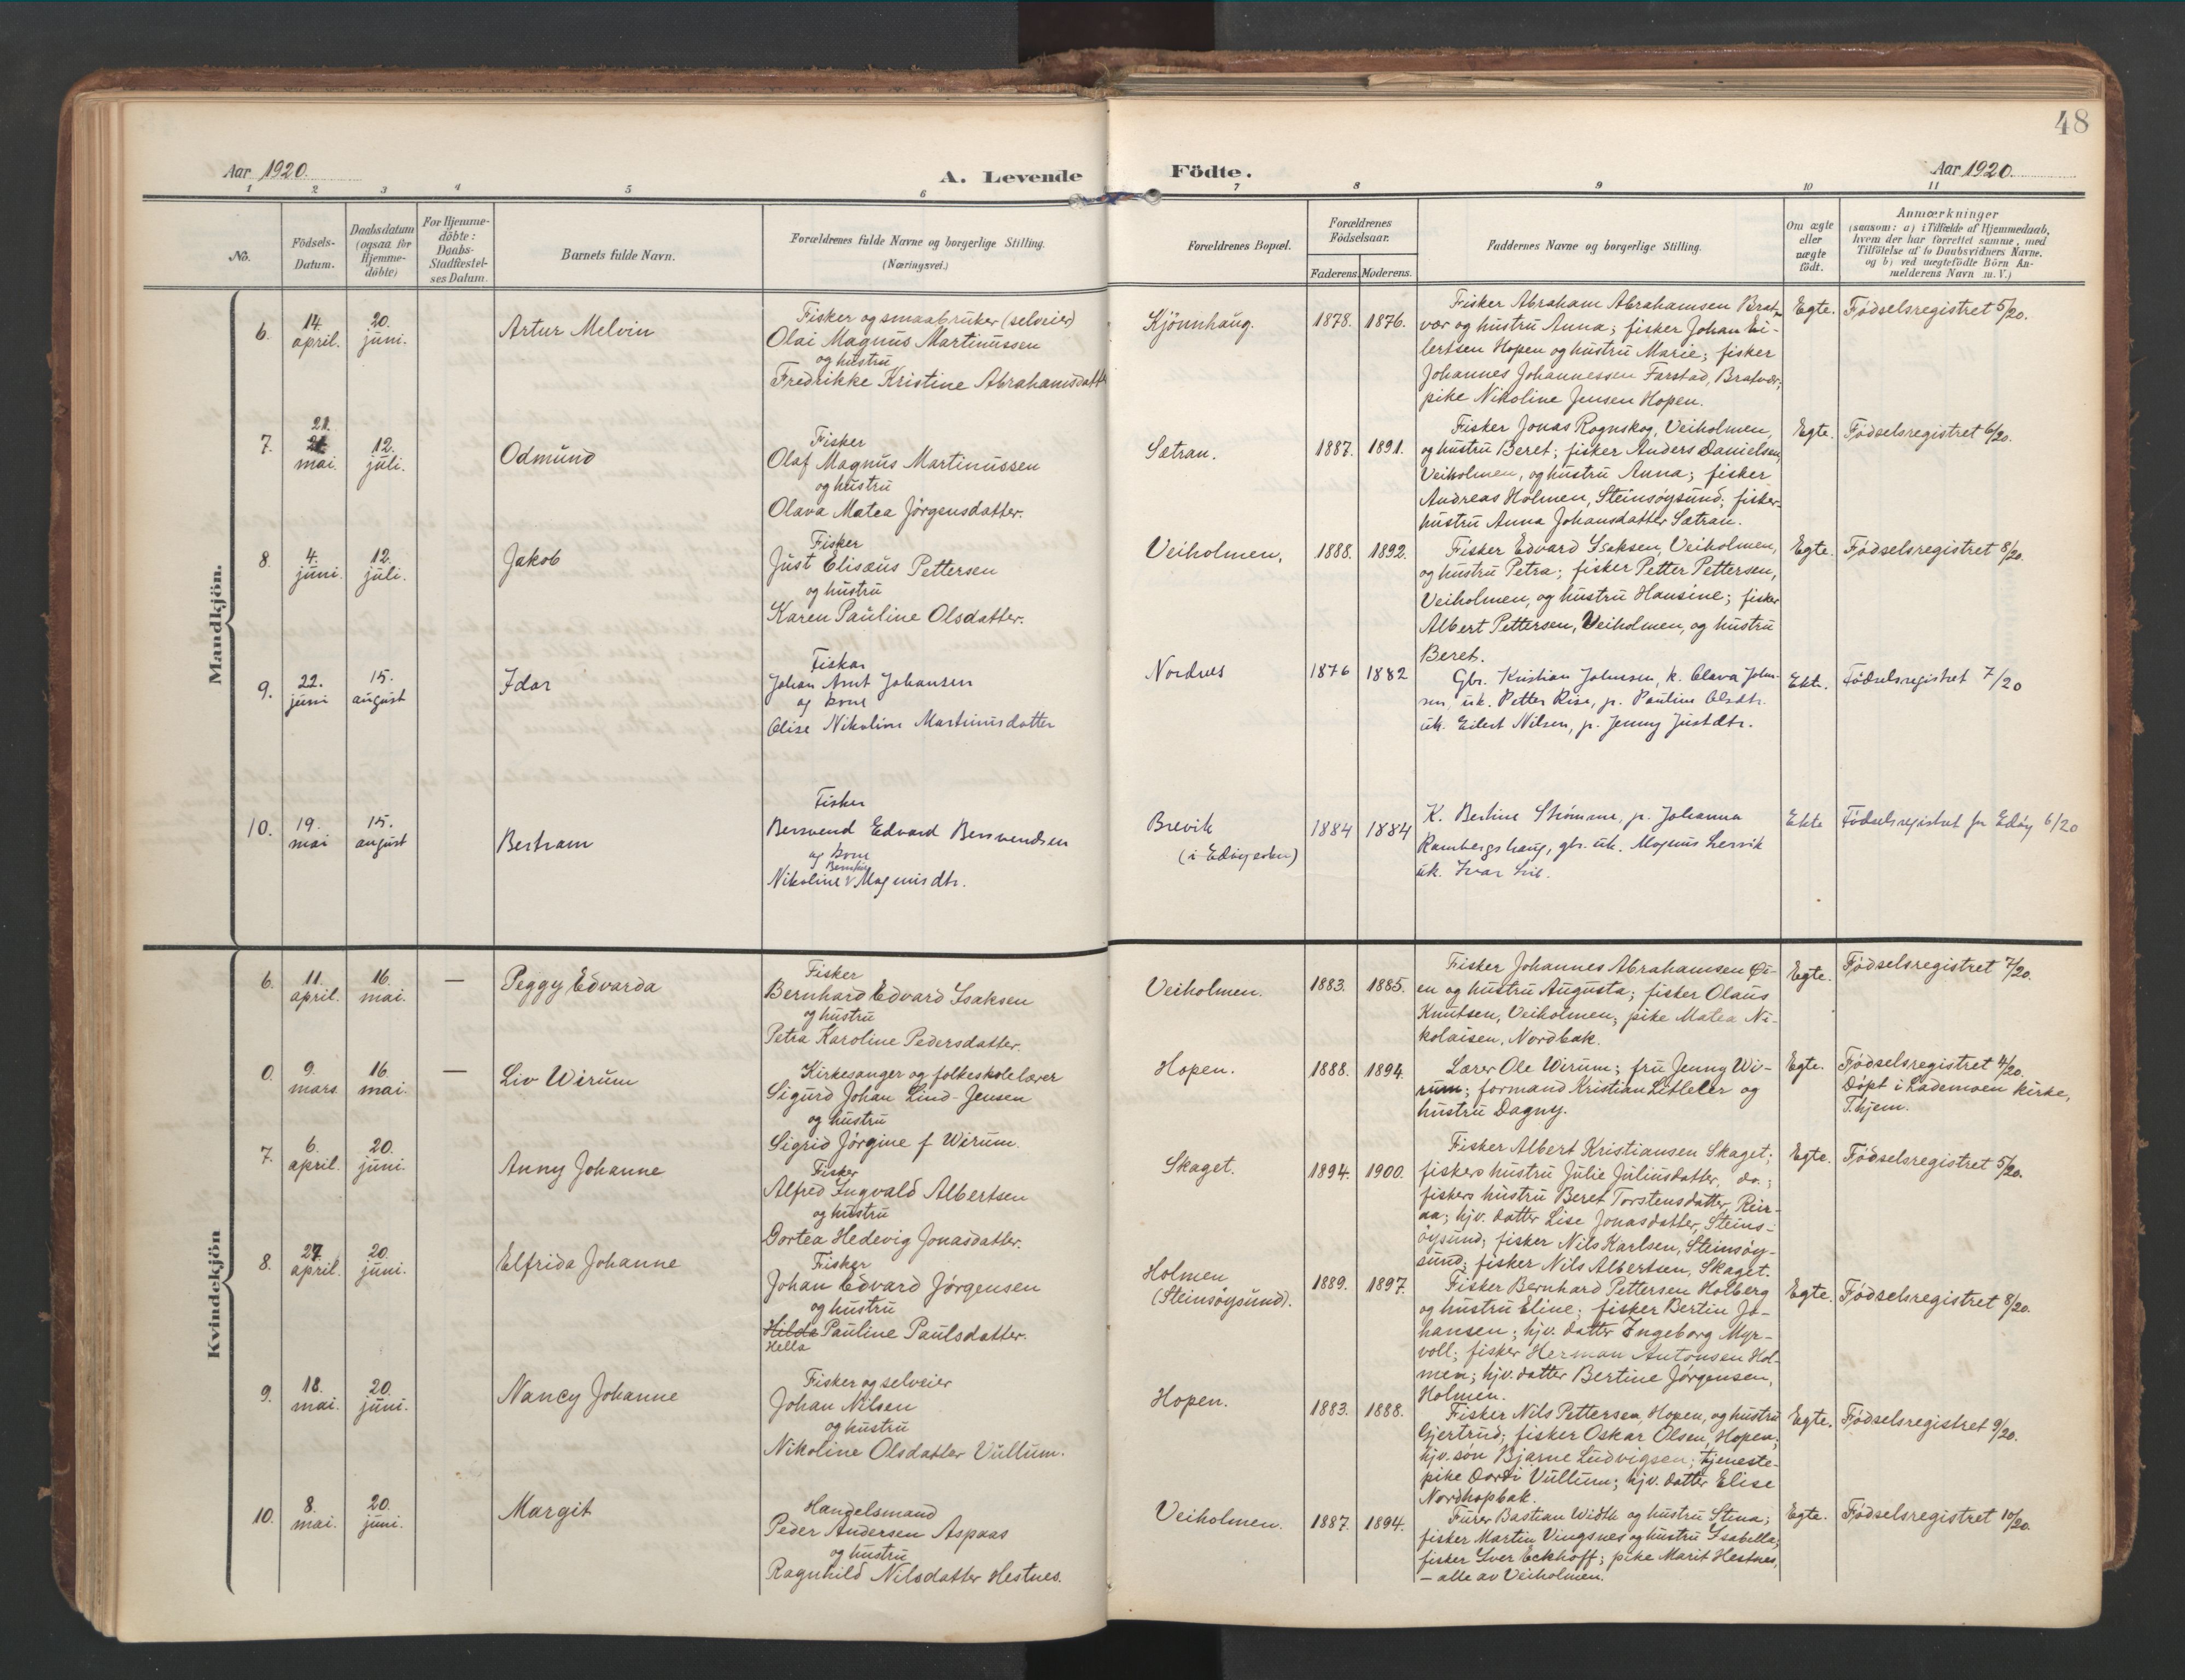 48
Aar 1920.
A. Levende Födte.
Aar 1920.
1 2 3 4 5 6 7 8 9 10 11
No.
Födsels-
Datum.
Daabsdatum
(ogsaa for
Hjemme-
döbte)
For Hjemme-
döbte:
Daabs-
Stadfæstel-
ses Datum.
Barnets fulde Navn.
Forældrenes fulde Navne og borgerlige Stilling.
(Næringsvei.)
Forældrenes Bopæl.
Forældrenes
Födselsaar.
Faderens. Moderens.
Faddernes Navne og borgerlige Stilling.
Om ægte
eller
uægte
födt.
Anmærkninger
(saasom: a) i Tilfælde af Hjemmedaab,
hvem der har forrettet samme, med
Tilföielse af to Daabsvidners Navne,
og b) ved uægtefödte Börn An-
melderens Navn m. V.)
Mandkjön.
6.
14.
april.
20.
juni.
Artur Melvin
Fisker og smaabruker (selveier)
Olai Magnus Martinussen
og hustru
Fredrikke Kristine Abrahamsdatt
Kjönnhaug.
1878. 1876.
Fisker Abraham Abrahamsen Brat-
vær og hustru Anna; fisker Johan Ei-
lertsen Hopen og hustru Marie; fisker
Johannes Johannessen Farstad, Bratvær;
pike Nikoline Jensen Hopen.
Egte.
Fødselsregistret 5/20.
7.
21.
mai.
12.
juli.
Odmund
Fisker
Olaf Magnus Martinussen
og hustru
Olava Matea Jørgensdatter.
Sætran.
1887. 1891.
Fisker Jonas Rognskog, Veiholmen,
og hustru Beret; fisker Anders Danielsen,
Veiholmen, og hustru Anna; fisker
Andreas Holmen, Steinsøysund; fisker-
hustru Anna Johansdatter Sætran.
Egte.
Fødselsregistret 6/20.
8.
4.
juni.
12.
juli.
Jakob
Fisker
Just Elisæus Pettersen
og hustru
Karen Pauline Olsdatter.
Veiholmen,
1888. 1892.
Fisker Edvard Isaksen, Veiholmen,
og hustru Petra; fisker Petter Pettersen,
Veiholmen, og hustru Hansine; fisker
Albert Pettersen, Veiholmen, og hustru
Beret.
Egte.
Fødselsregistret 8/20.
9.
22.
juni
15.
august
Idar
Fisker
Johan Arnt Johansen
og kone
Olise Nikoline Martinusdatter
Nordnes
1876 1882
Gbr. Kristian Johnsen, k. Olava John-
sen, uk. Petter Rise, p. Pauline Olsdtr.
uk. Eilert Nilsen, p. Jenny Justdtr.
Ekte.
Fødselsregistret 7/20
10.
19.
mai
15.
august
Bertram
Fisker
Bersvend Edvard Bersvendsen
og kone
Nikoline Magnusdtr.
Brevik
(i Edøy sokn)
1884 1884
K. Bertine Strömme, p. Johanna
Rambergshaug, gbr. uk. Magnus Lervik
uk. Ivar
Ekte
Fødselsregistret for Edøy 6/20
Kvindekjön
6.
11.
april.
16.
mai.
—
Peggy Edvarda
Fisker
Bernhard Edvard Isaksen
og hustru
Petra Karoline Pedersdatter.
Veiholmen.
1883. 1885.
Fisker Johannes Abrahamsen Øi-
en og hustru Augusta; fisker Olaus
Knutsen, Veiholmen; pike Matea Ni-
kolaisen, Nordbak.
Egte.
Fødselsregistret 7/20.
0.
9.
mars.
16.
mai.
—
Liv Wirum
Kirkesanger og folkeskolelærer
Sigurd Johan Lind-Jensen
og hustru
Sigrid Jørgine f Wirum.
Hopen.
1888. 1894.
Lærer Ole Wirum; fru Jenny Wi-
rum; formand Kristian Litleler og
hustru Dagny.
Egte.
Fødselsregistret 4/20.
Döpt i Lademoen kirke,
T.hjem.
7.
6.
april.
20.
juni.
Anny Johanne
Fisker
Alfred Ingvald Albertsen
og hustru
Dortea Hedevig Jonasdatter.
Skaget.
1894. 1900.
Fisker Albert Kristiansen Skaget;
fiskers hustru Julie Juliusdatter, do.;
fiskers hustru Beret Torstensdatter, Reir-
aa; hjv. datter Lise Jonasdatter, Steins-
øysund; fisker Nils Karlsen, Steinsøy-
sund; fisker Nils Albertsen, Skaget.
Egte.
Fødselsregistret 5/20.
8.
27.
april.
20.
juni.
Elfrida Johanne
Fisker
Johan Edvard Jørgensen
og hustru
Hilda Pauline Paulsdatter.
Hella
Holmen
(Steinsøysund).
1889. 1897.
Fisker Bernhard Pettersen Holberg
og hustru Eline; fisker Bertin Jo-
hansen; hjv. datter Ingeborg Myr-
voll; fisker Herman Antonsen Hol-
men; hjv. datter Bertine Jørgensen,
Holmen.
Egte.
Fødselsregistret 8/20.
9.
18.
mai.
20.
juni.
Nancy Johanne
Fisker og selveier
Johan Nilsen
og hustru
Nikoline Olsdatter Vullum.
Hopen.
1883. 1888.
Fisker Nils Pettersen, Hopen, og hustru
Gjertrud; fisker Oskar Olsen, Hopen;
hjv. søn Bjarne Ludvigsen; tjeneste-
pike Dordi Vullum; hjv. datter Elise
Nordhopbak.
Egte.
Fødselsregistret 9/20.
10.
8.
mai.
20.
juni.
Margit
Handelsmand
Peder Andersen Aspaas
og hustru
Ragnhild Nilsdatter Hestnes.
Veiholmen.
1887. 1894.
Furer Bastian Width og hustru Stina;
fisker Martin Vingsnes og hustru Isabella;
fisker Iver Eckhoff; pike Marit Hestnes,
— alle av Veiholmen.
Egte.
Fødselsregistret 10/20.